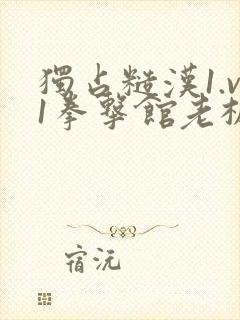 獨占糙漢1.v
1拳擊館老板
宿沅